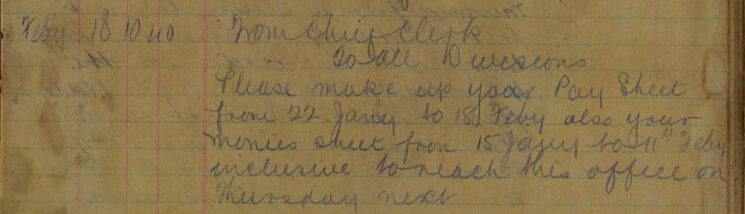 Feby 18 10 40 From Chief Clerk
to all Divisions
Please make up your Pay Sheet
from 22 Jany to 18 Feby also your
monies sheet from 15 Jany to 11th Feby
inclusive to reach this office on
Thursday next